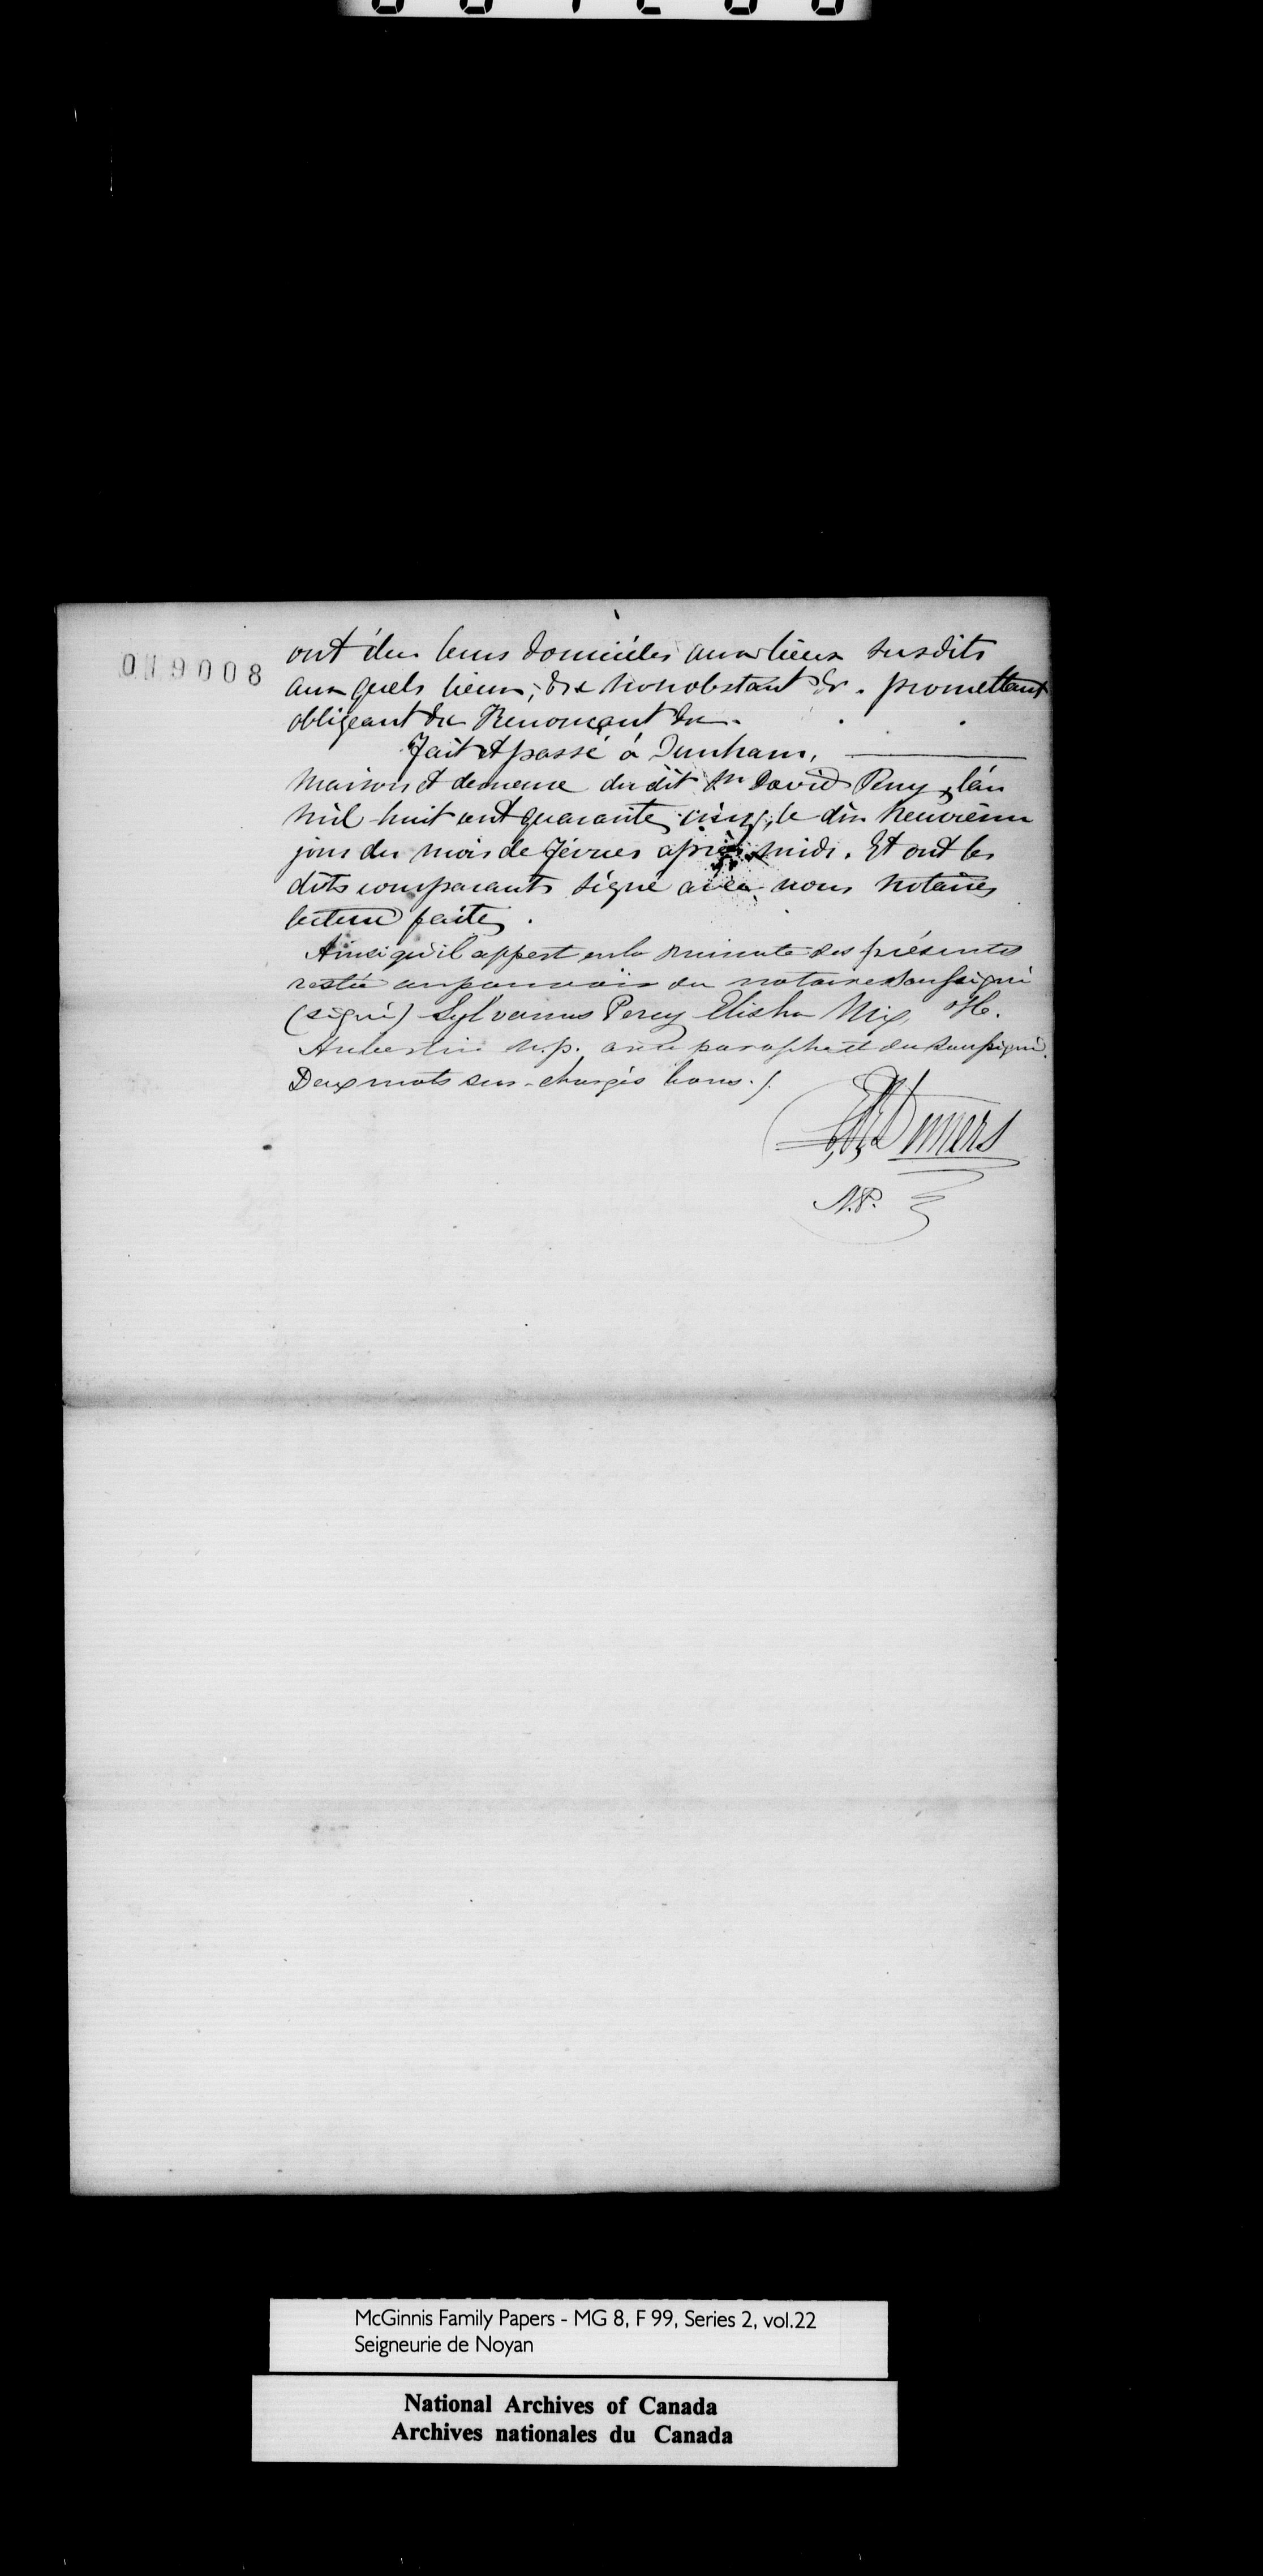 019008
ont élu leurs domiciles aux lieux susdits
aux quels lieux, &c nonobstant &c. promettant
obligeant &c Renonçant &c.
Fait et passé à Dunham,
maison et demeure du dit Sr David Perry, l'an
mil huit cent quarante cinq, le dix neuvième
jour du mois de Février après midi. Et ont les
dits comparants signé avec nous notaires
lecture faite.
Ainsi qu'il appert en la minute des présentes
restée au pouvoir du notaire soussigné
(signé) Sylvanus Percy Elisha Mix, H.
Aubertin N.p. avec paraphe et du soussigné.
Deux mots sur-chargés bons./.
Demers
N.P.
McGinnis Family Papers - MG 8, F 99, Series 2, vol.22
Seigneurie de Noyan
National Archives of Canada
Archives nationales du Canada